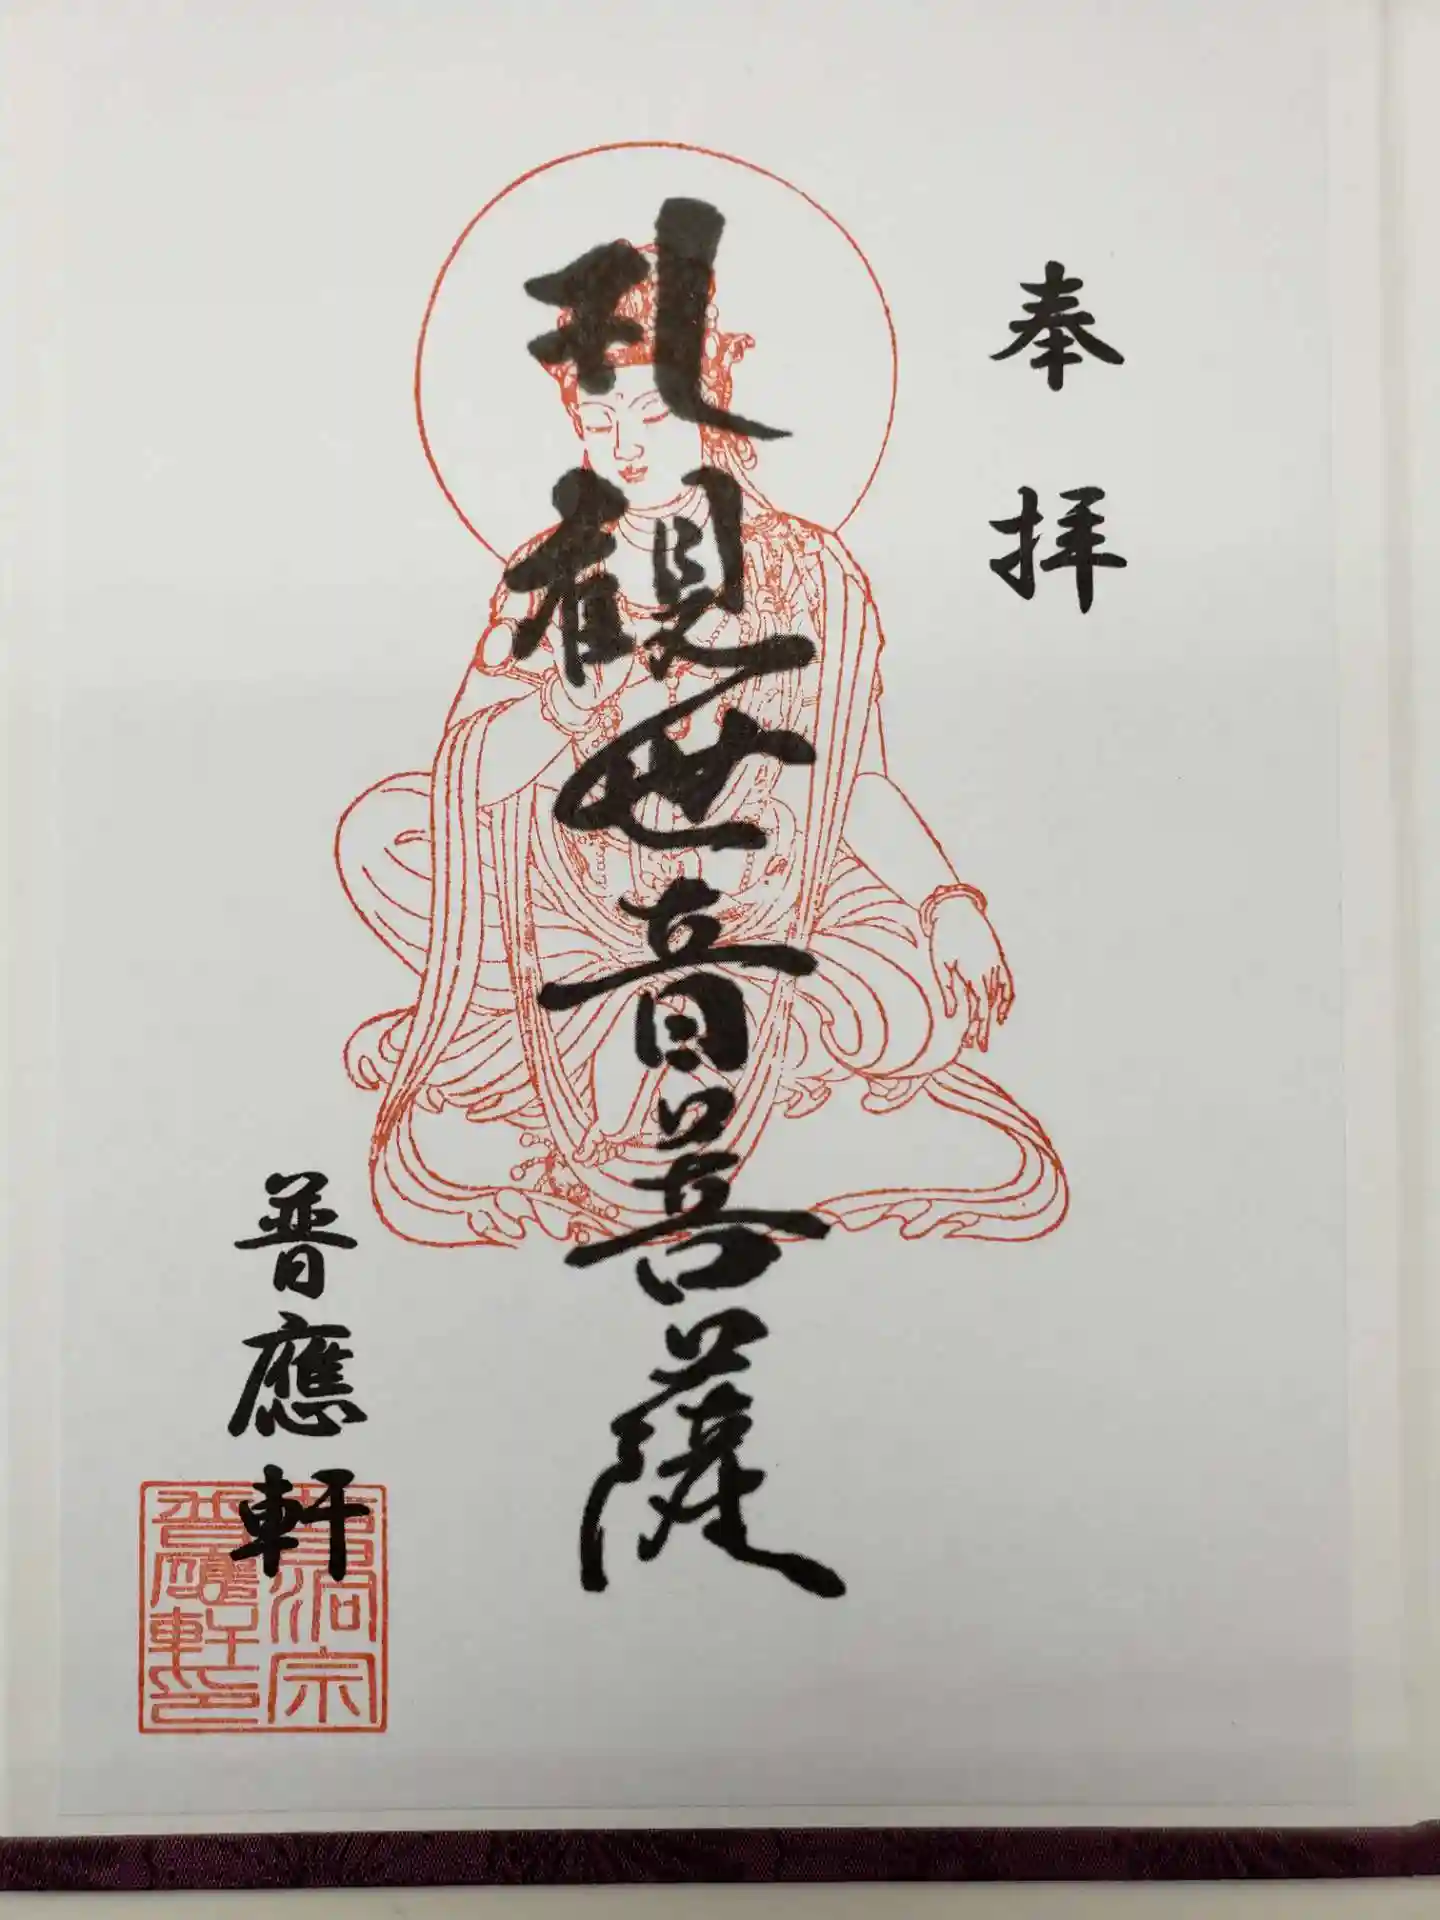 奉拝
観世音菩薩
普應軒
曹洞宗
普應軒印